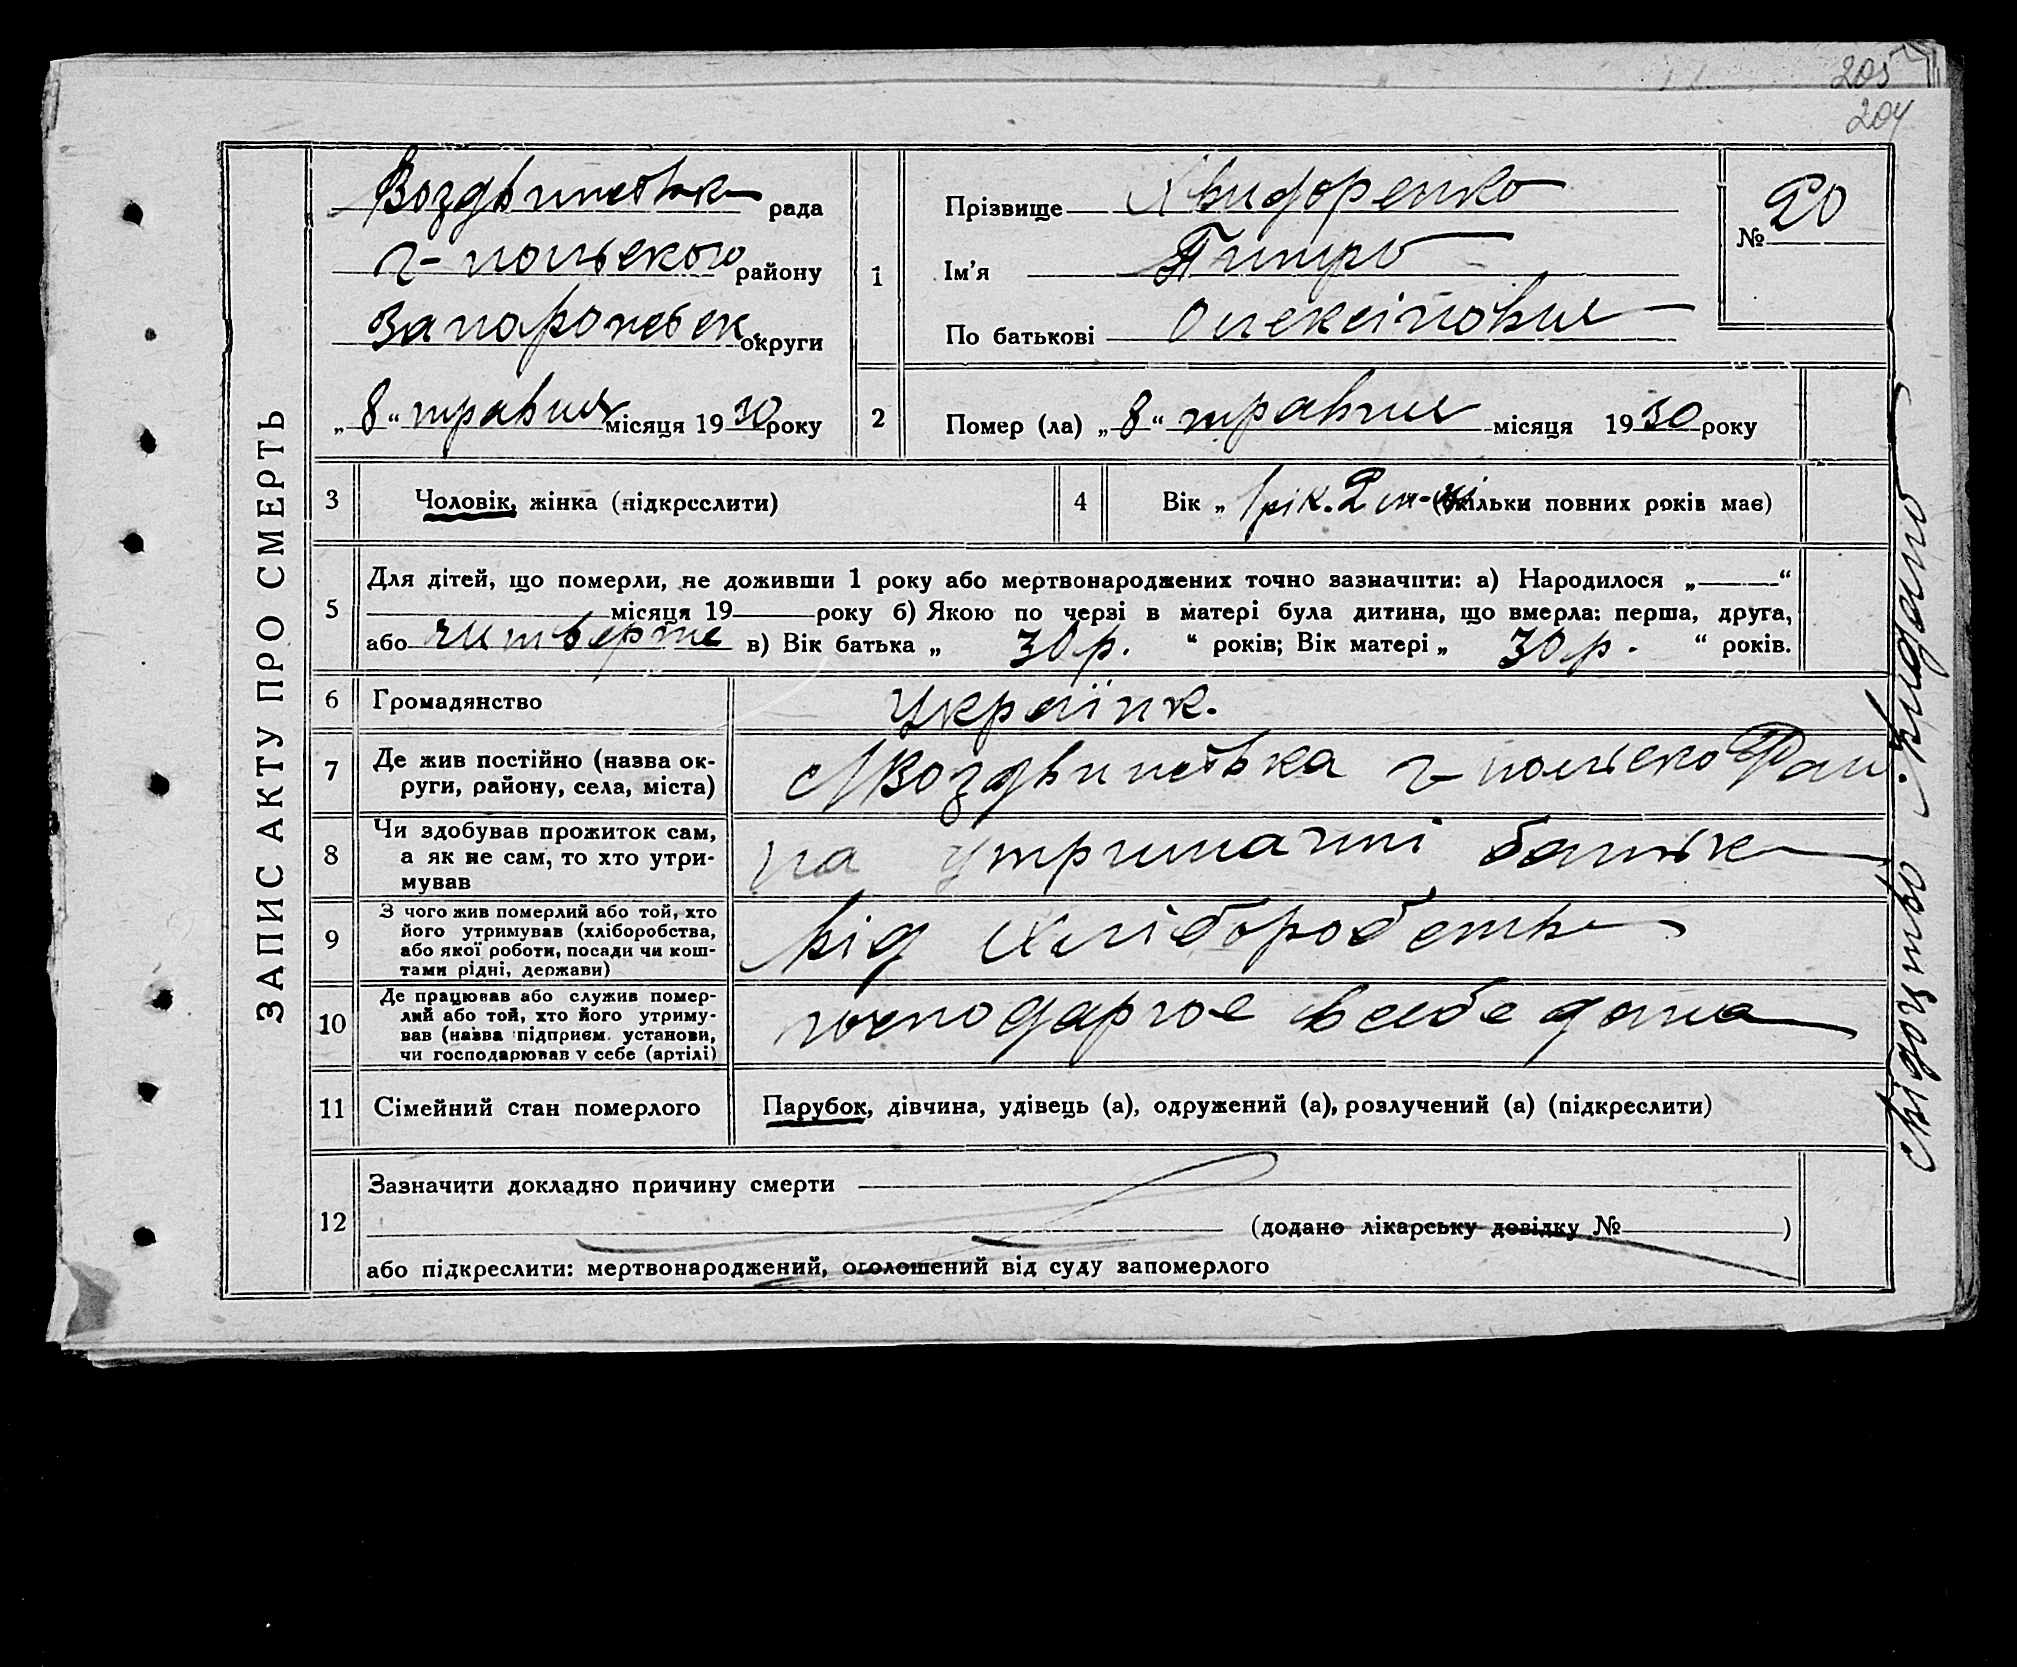 205
204
ЗАПИС АКТУ ПРО СМЕРТЬ
Воздвижевск рада
г-польского району
Запорожськ округи
„8“ травня місяця 1930 року
1
Прізвище Хвидоренко
Ім’я Питро
По батькові Олексійович
№ 20
2
Помер (ла) „8“ травня місяця 1930 року
3
Чоловік, жінка (підкреслити)
4
Вік „ 1 рік. 2 м-ці (скільки повних років має)
5
Для дітей, що померли, не доживши 1 року або мертвонароджених точно зазначити: а) Народилося „ “
місяця 19 року б) Якою по черзі в матері була дитина, що вмерла: перша, друга,
або читверте в) Вік батька „ 30 р. “ років; Вік матері „ 30 р. “ років.
6
Громадянство
Українк.
7
Де жив постійно (назва ок-
руги, району, села, міста)
Воздвижевка г-польского Рай
8
Чи здобував прожиток сам,
а як не сам, то хто утри-
мував
на утриманні батьк
9
З чого жив померлий або той, хто
його утримував (хліборобства,
або якої роботи, посади чи кош-
тами рідні, держави)
від хліборобства
10
Де працював або служив помер-
лий або той, хто його утриму-
вав (назва підприєм. установи,
чи господарював у себе (артілі)
господарює всебе дома
11
Сімейний стан померлого
Парубок, дівчина, удівець (а), одружений (а), розлучений (а) (підкреслити)
12
Зазначити докладно причину смерти
(додано лікарську довідку № )
або підкреслити: мертвонароджений, оголошений від суду запомерлого
Свідоцтво видано